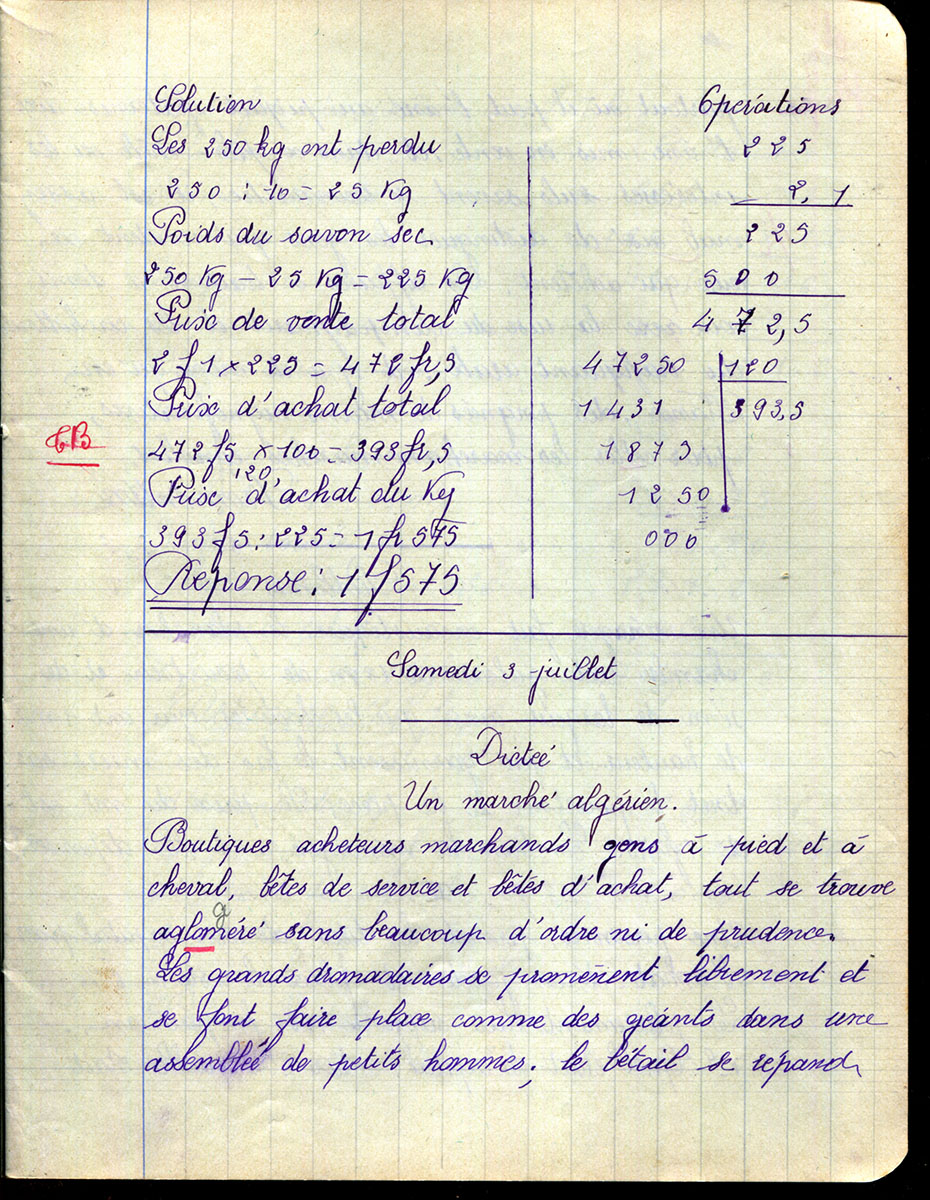 Solution
Operations
Les 250 kg ont perdu
250 : 10 = 25 Kg
Poids du savon sec
250 Kg - 25 Kg = 225 Kg
Prix de vente total
2 f 1 x 225 = 472 fr,5
Prix d'achat total
TB
472 f5 x 100 = 393 fr,5
120
Prix d'achat du Kg
393 f 5 : 225 = 1 fr 575
Réponse : 1 f 575
225
2,1
225
500
472,5
47250 120
1431 393,5
1873
1250
000
Samedi 3 juillet
Dictée
Un marché algérien.
Boutiques acheteurs marchands gens à pied et à
cheval, bêtes de service et bêtes d'achat, tout se trouve
g
agloméré sans beaucoup d'ordre ni de prudence.
Les grands dromadaires se promènent librement et
se font faire place comme des géants dans une
assemblée de petits hommes ; le bétail se répand